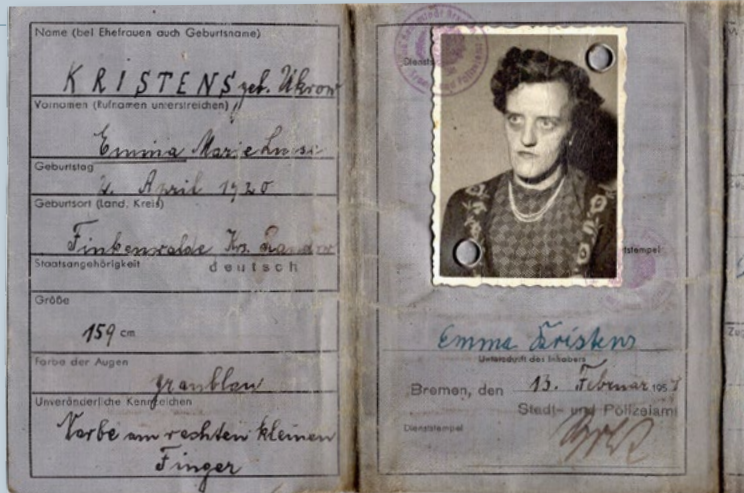 Name (bei Ehefrauen auch Geburtsname)
KRISTENS geb. Ukrow
Vornamen (Rufnamen unterstreichen)
Emma Marie Luise
Geburtstag
2. April 1920
Geburtsort (Land, Kreis)
Finkenwalde Krs. Randow
Staatsangehörigkeit deutsch
Größe
159 cm
Farbe der Augen
graublau
Unveränderliche Kennzeichen
Narbe am rechten kleinen
Finger
Dienstst
tstempel
Emma Kristens
Unterschrift des Inhabers
Bremen, den 13. Februar 195
Stadt- und Polizeiamt
Dienststempel